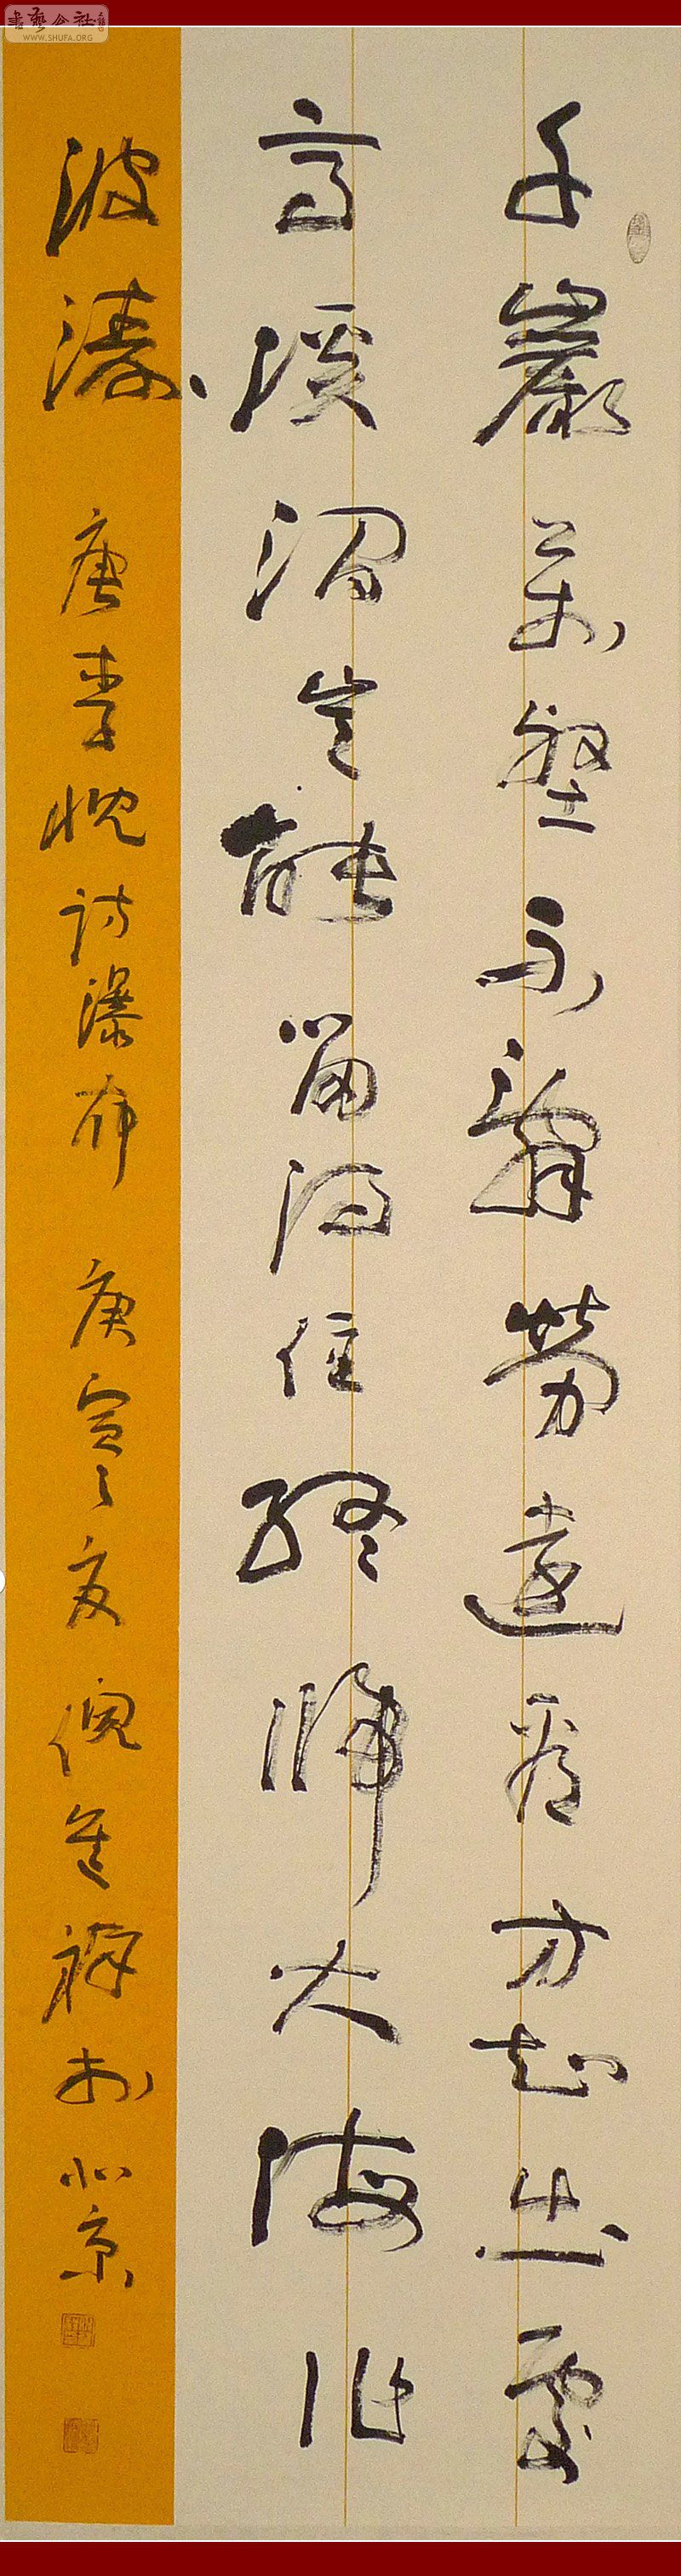 書藝公社
WWW.SHUFA.ORG
千巖萬壑不辭勞遠看方知出處
高溪澗豈能留得住終歸大海作
波濤 唐李忱詩瀑布 庚寅之夏倪祥於北京